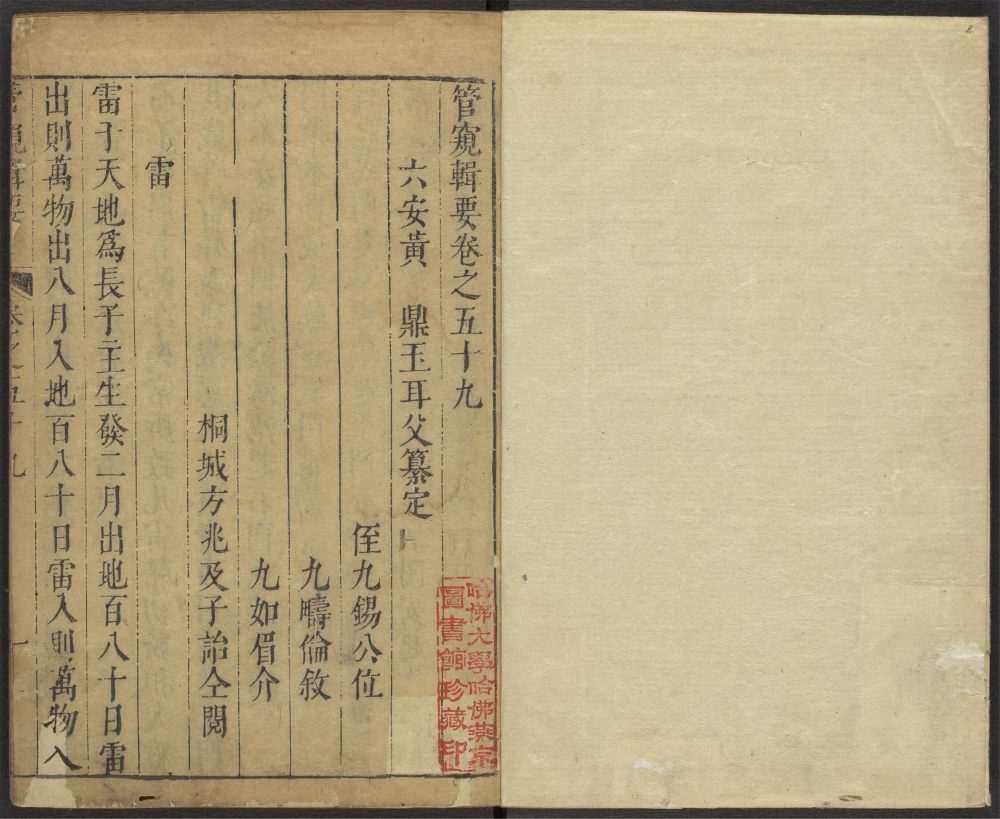 管窺輯要卷之五十九
六安黃 鼎玉耳父纂定
侄九錫公位
九疇倫敘
九如眉介
桐城方兆及子詒仝閱
雷
雷于天地爲長子主生發二月出地百八十日雷
出則萬物出八月入地百八十日雷入則萬物入
管窺輯要 卷之五十九 一
哈佛大學哈佛燕京
圖書館珍藏印